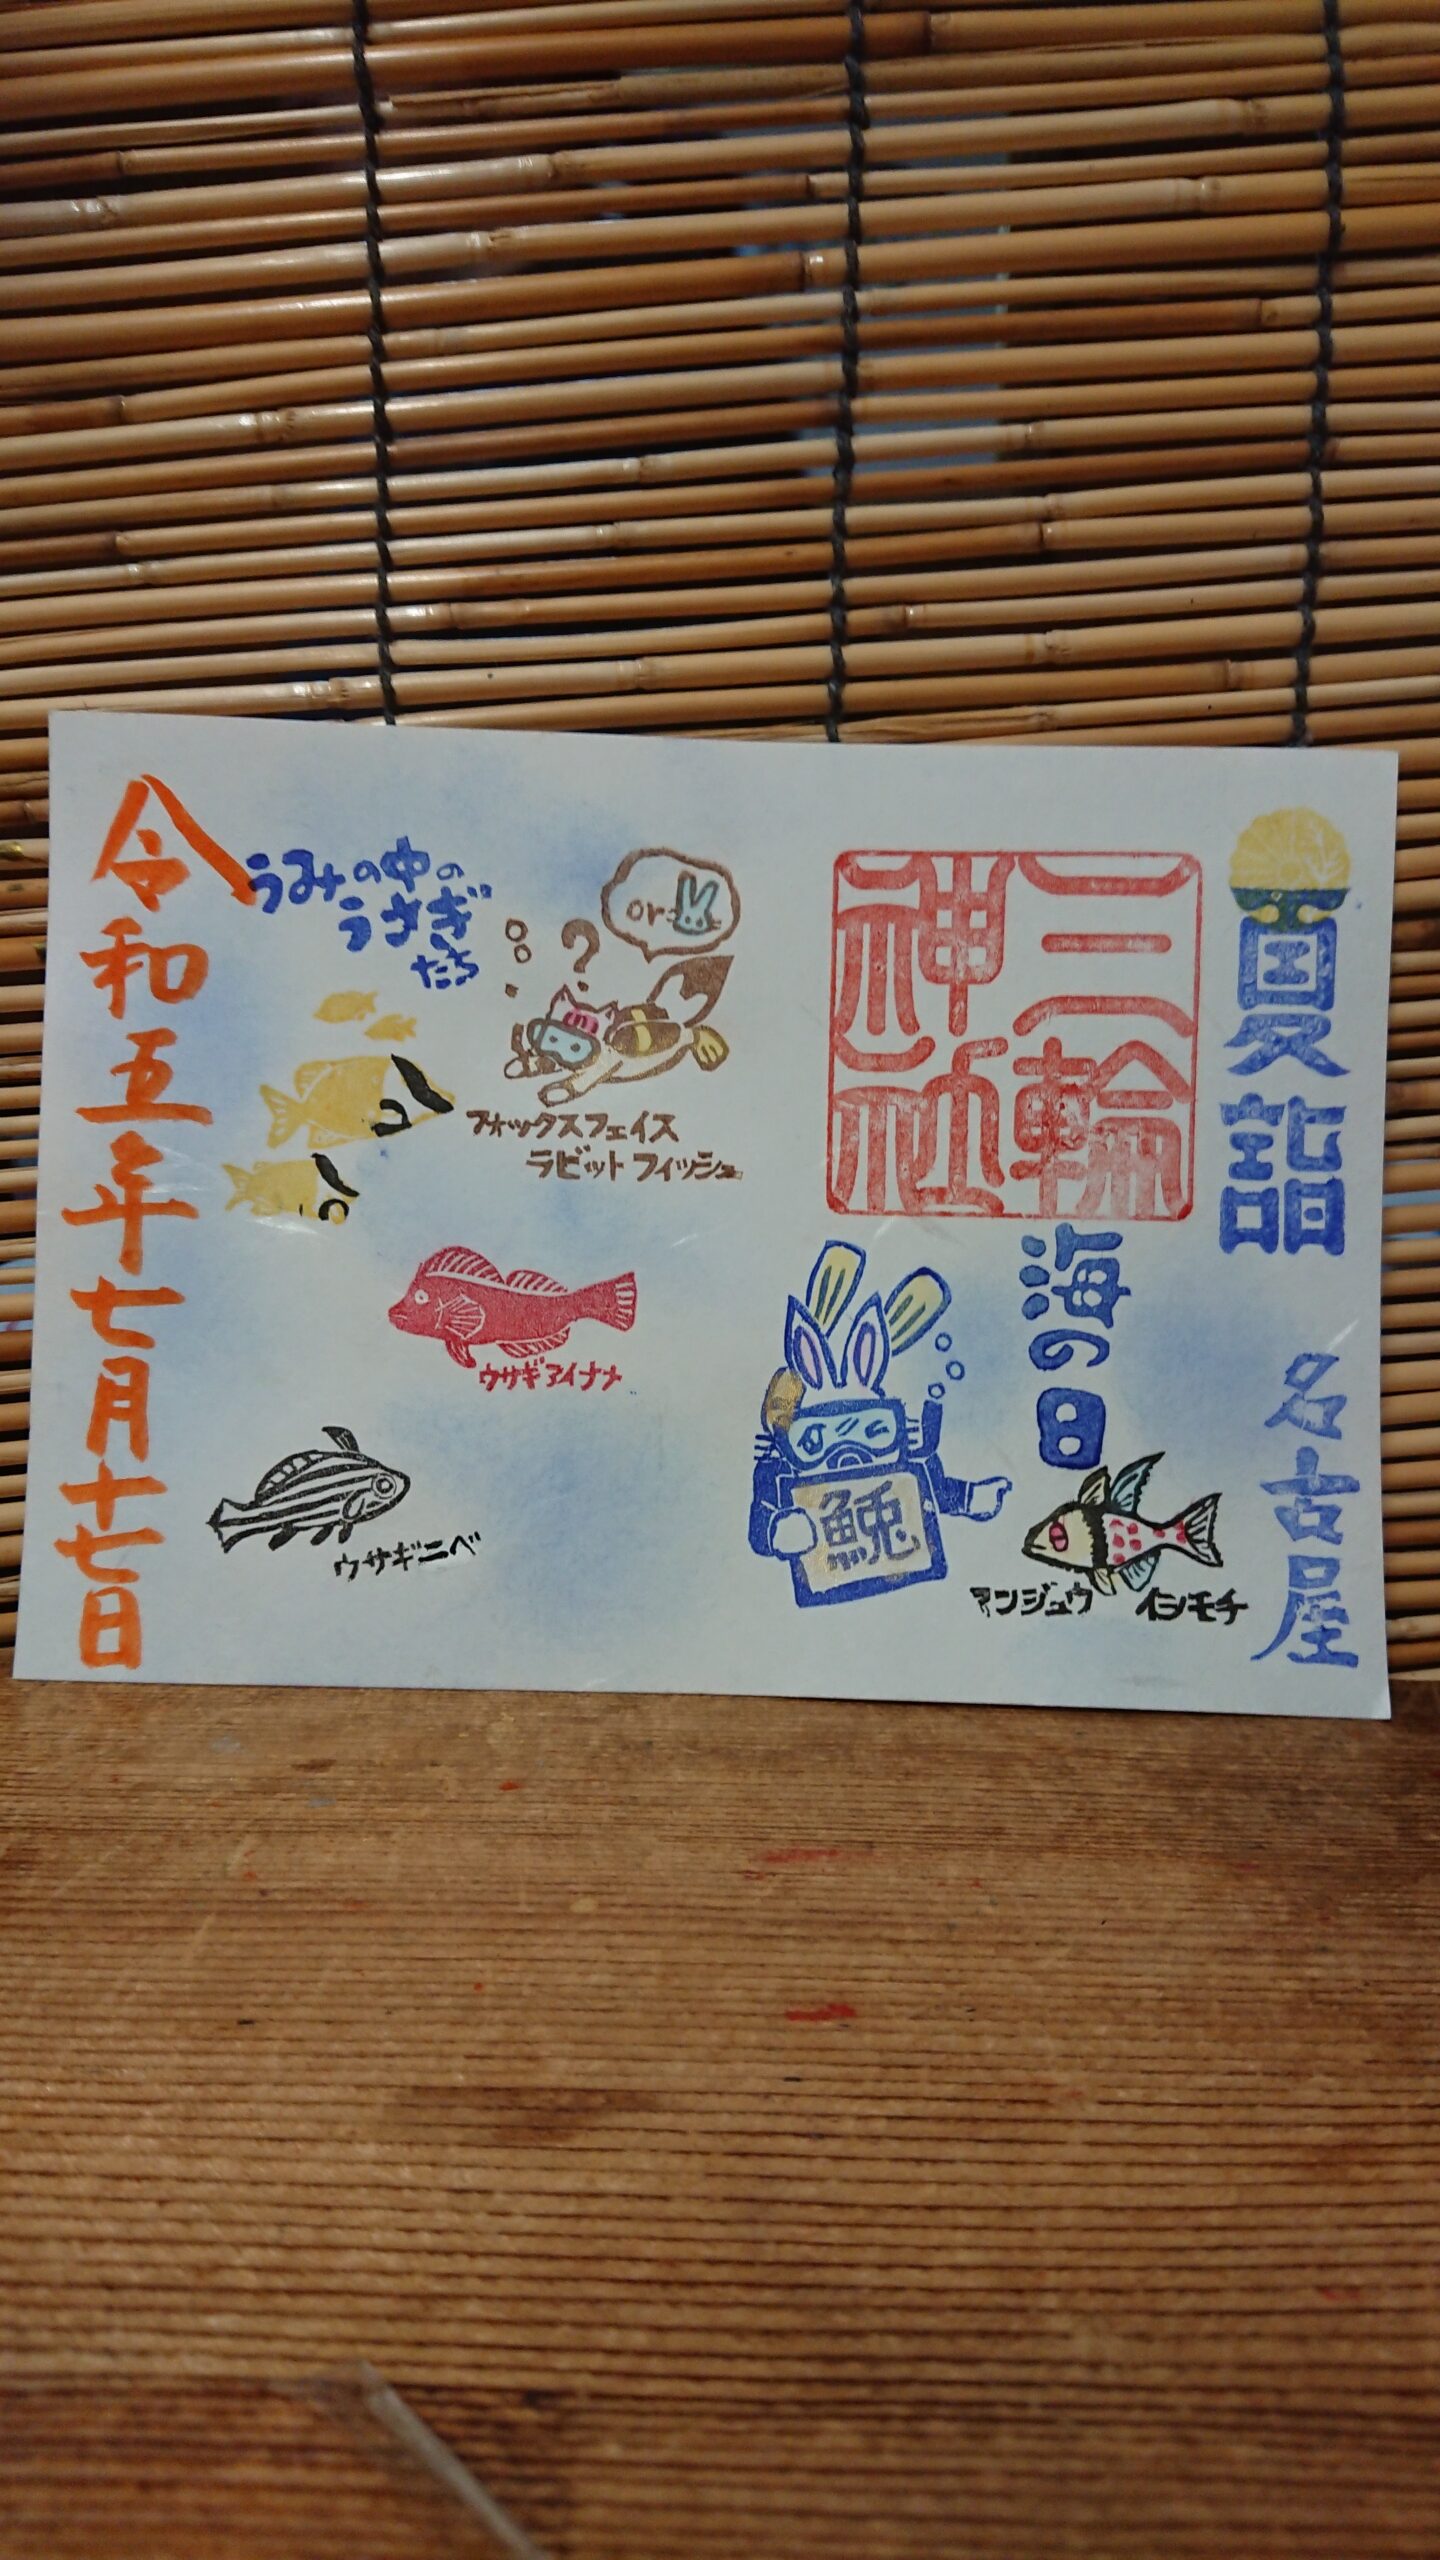 夏詣
名古屋
三輪
神社
海の日
鯢
マンジュウ イシモチ
or
?
うみの中の
うさぎ
たち
フォックスフェイス
ラビットフィッシュ
ウサギアイナメ
ウサギニベ
令和五年七月十七日